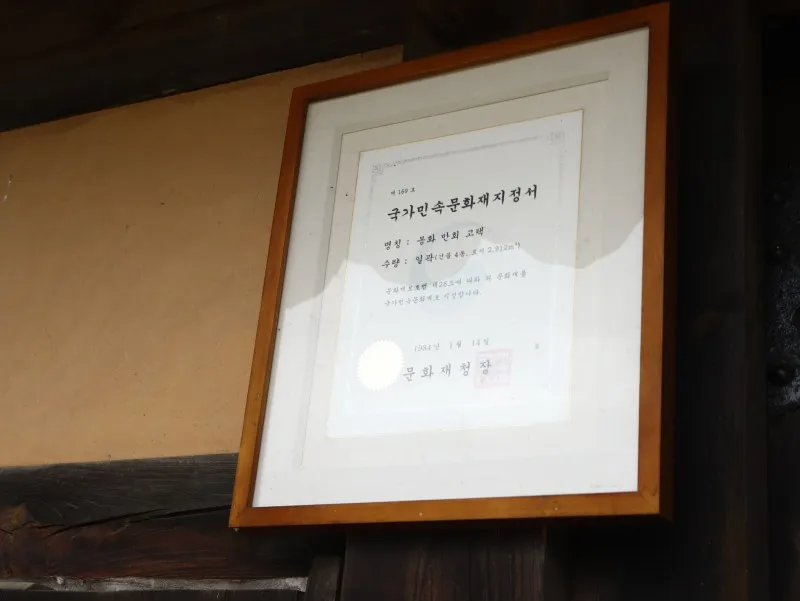 제 169 호
국가민속문화재지정서
명칭 : 봉화 만회 고택
수량 : 일곽(건물 4동, 토지 2,912m²)
문화재보호법 제26조에 따라 위 문화재를
국가민속문화재로 지정합니다.
월 일
문화재청장